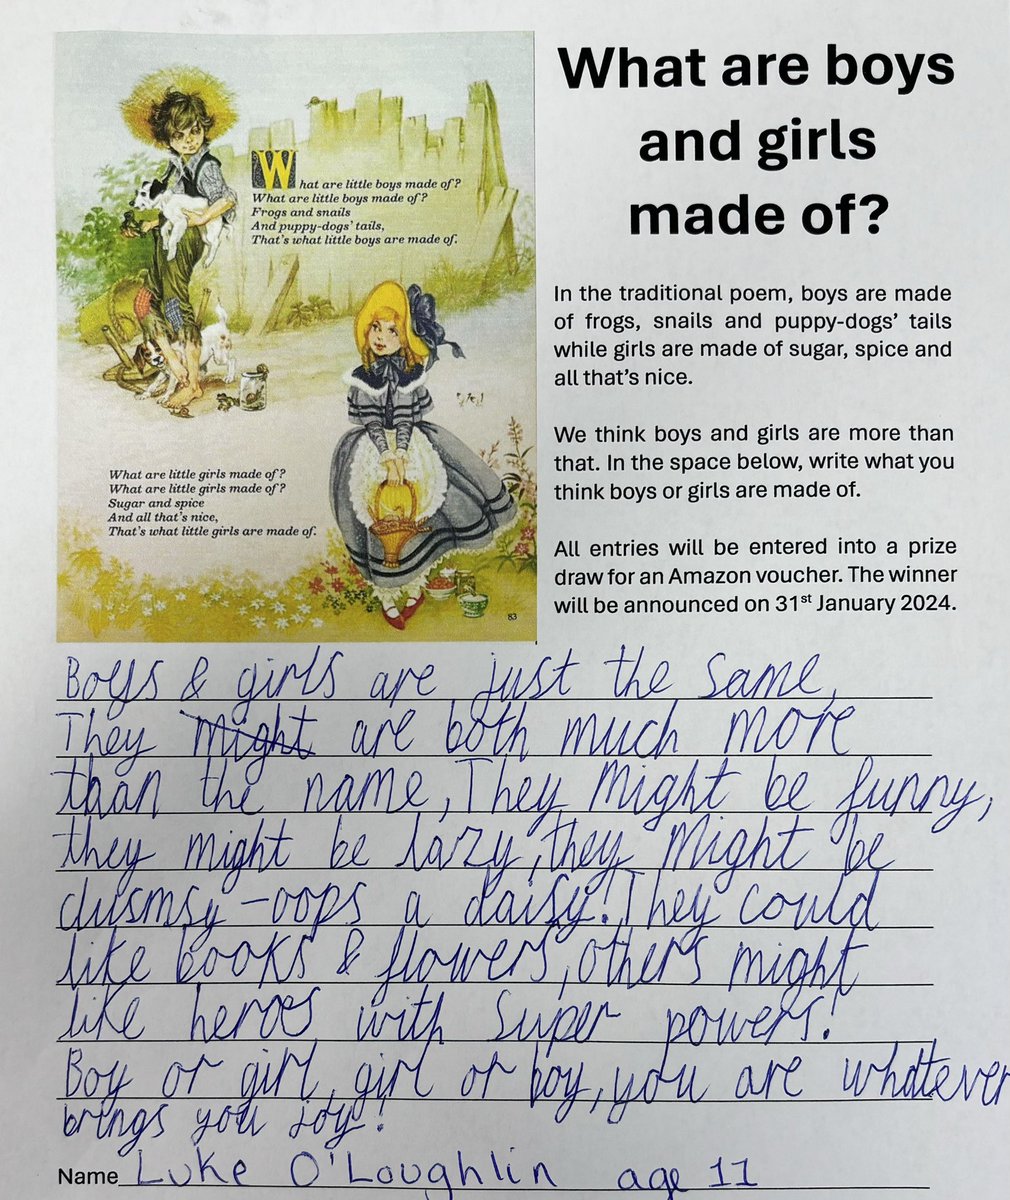 What are boys
and girls
made of?
What are little boys made of?
What are little boys made of?
Frogs and snails
And puppy-dogs' tails,
That's what little boys are made of.
What are little girls made of?
What are little girls made of?
Sugar and spice
And all that's nice,
That's what little girls are made of.
83
In the traditional poem, boys are made
of frogs, snails and puppy-dogs' tails
while girls are made of sugar, spice and
all that's nice.
We think boys and girls are more than
that. In the space below, write what you
think boys or girls are made of.
All entries will be entered into a prize
draw for an Amazon voucher. The winner
will be announced on 31st January 2024.
Boys & girls are just the same,
They might are both much more
than the name, They might be funny,
they might be lazy, they might be
clusmsy - oops a daisy! They could
like books & flowers, others might
like heroes with super powers!
Boy or girl, girl or boy, you are whatever
brings you joy!
Name Luke O'Loughlin age 11